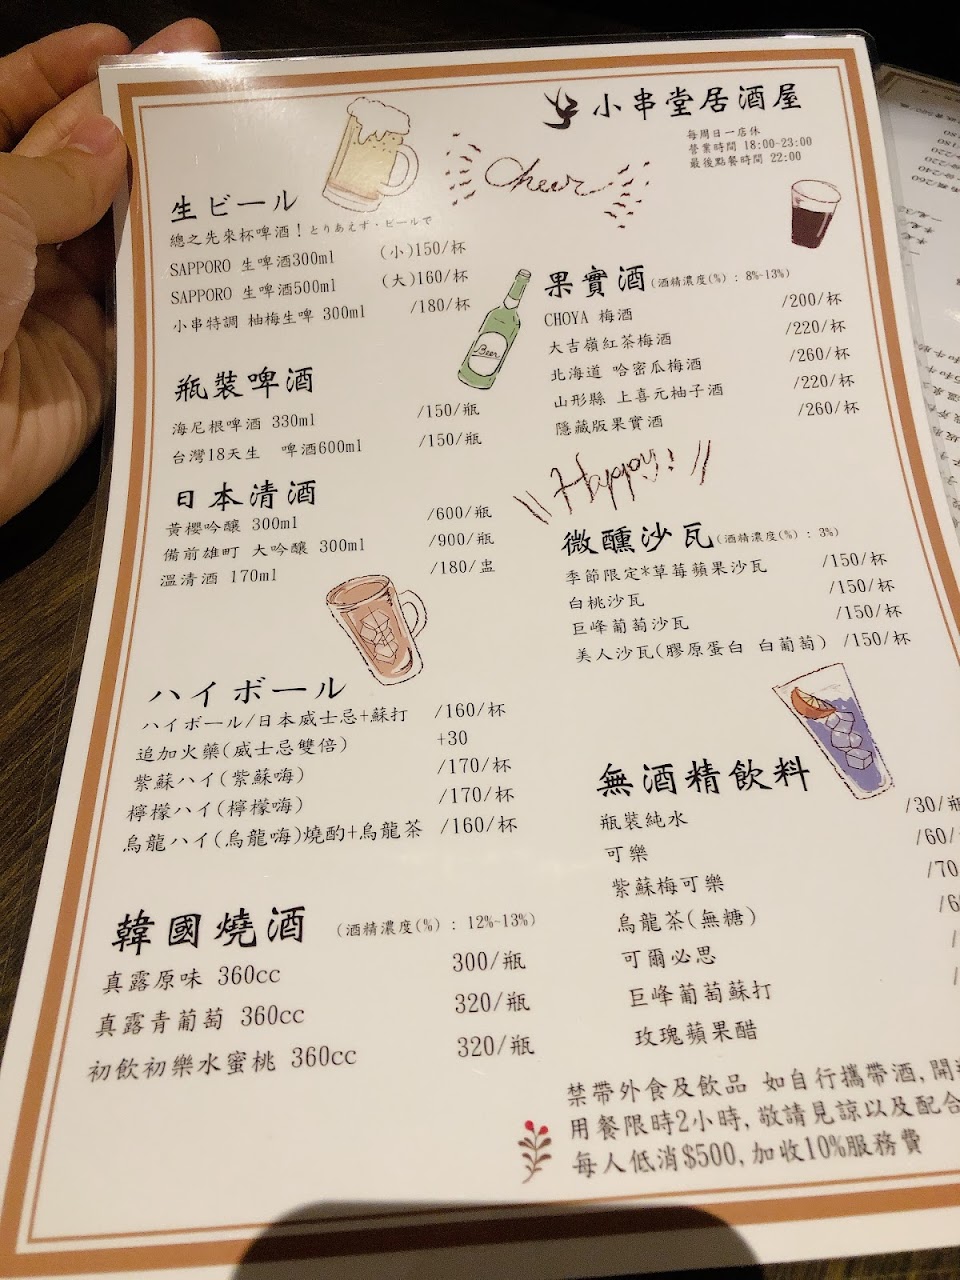 小串堂居酒屋
每周日一店休
營業時間 18:00~23:00
最後點餐時間 22:00
Cheer
生ビール
總之先來杯啤酒！とりあえず・ビールで
SAPPORO 生啤酒300ml (小)150/杯
SAPPORO 生啤酒500ml (大)160/杯
小串特調 柚梅生啤 300ml /180/杯
Beer
瓶裝啤酒
海尼根啤酒 330ml /150/瓶
台灣18天生 啤酒600ml /150/瓶
日本清酒
黃櫻吟釀 300ml /600/瓶
備前雄町 大吟釀 300ml /900/瓶
溫清酒 170ml /180/盅
ハイボール
ハイボール/日本威士忌+蘇打 /160/杯
追加火藥(威士忌雙倍) +30
紫蘇ハイ(紫蘇嗨) /170/杯
檸檬ハイ(檸檬嗨) /170/杯
烏龍ハイ(烏龍嗨)燒酌+烏龍茶 /160/杯
韓國燒酒 (酒精濃度(%) : 12%~13%)
真露原味 360cc 300/瓶
真露青葡萄 360cc 320/瓶
初飲初樂水蜜桃 360cc 320/瓶
果實酒(酒精濃度(%) : 8%~13%)
CHOYA 梅酒 /200/杯
大吉嶺紅茶梅酒 /220/杯
北海道 哈密瓜梅酒 /260/杯
山形縣 上喜元柚子酒 /220/杯
隱藏版果實酒 /260/杯
Happy!
微醺沙瓦(酒精濃度(%) : 3%)
季節限定*草莓蘋果沙瓦 /150/杯
白桃沙瓦 /150/杯
巨峰葡萄沙瓦 /150/杯
美人沙瓦(膠原蛋白 白葡萄) /150/杯
無酒精飲料
瓶裝純水 /30/瓶
可樂 /60/
紫蘇梅可樂 /70
烏龍茶(無糖) /6
可爾必思 /
巨峰葡萄蘇打 /
玫瑰蘋果醋
禁帶外食及飲品 如自行攜帶酒,開
用餐限時2小時,敬請見諒以及配合
每人低消$500,加收10%服務費